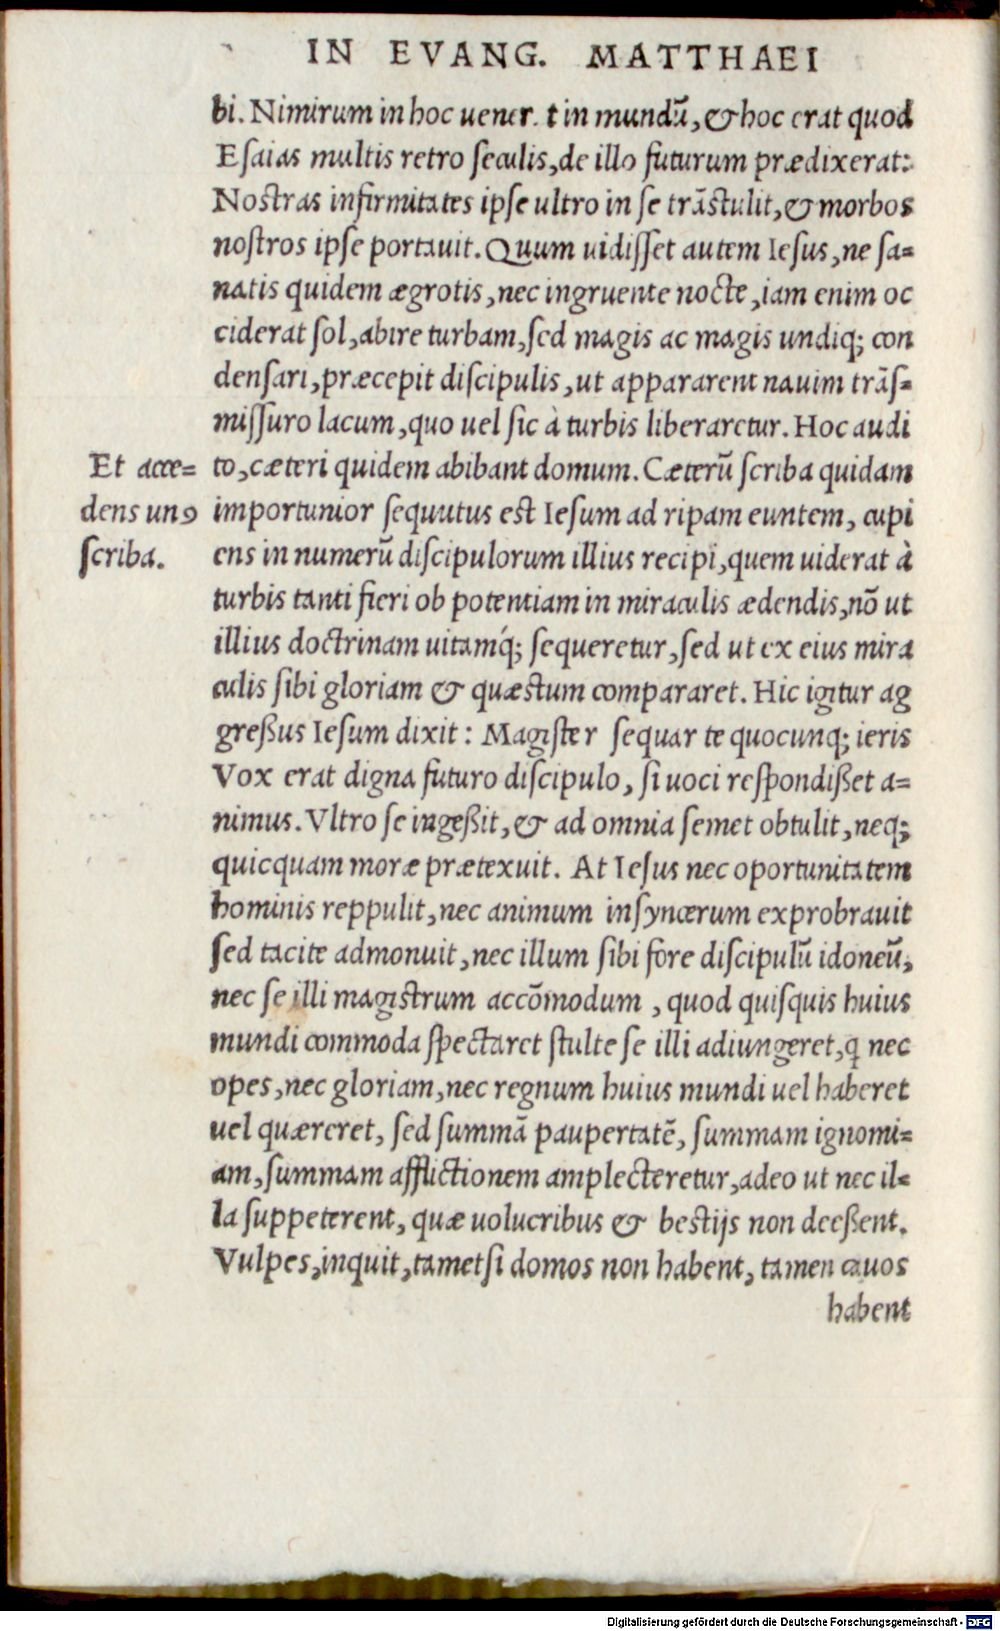 IN EVANG. MATTHAEI
bi. Nimirum in hoc uener. t in mundũ, & hoc erat quod
Esaias multis retro seculis, de illo futurum prædixerat:
Nostras infirmitates ipse ultro in se trãstulit, & morbos
nostros ipse portauit. Quum uidisset autem Iesus, ne sa=
natis quidem ægrotis, nec ingruente nocte, iam enim oc
ciderat sol, abire turbam, sed magis ac magis undiq; con
densari, præcepit discipulis, ut appararent nauim trãs=
missuro lacum, quo uel sic à turbis liberaretur. Hoc audi
Et acce=
dens unꝰ
scriba.
to, cæteri quidem abibant domum. Cæterũ scriba quidam
importunior sequutus est Iesum ad ripam euntem, cupi
ens in numerũ discipulorum illius recipi, quem uiderat à
turbis tanti fieri ob potentiam in miraculis ædendis, nõ ut
illius doctrinam uitamq́; sequeretur, sed ut ex eius mira
culis sibi gloriam & quæstum compararet. Hic igitur ag
greßus Iesum dixit: Magister sequar te quocunq; ieris
Vox erat digna futuro discipulo, si uoci respondißet a=
nimus. Vltro se ingeßit, & ad omnia semet obtulit, neq;
quicquam moræ prætexuit. At Iesus nec oportunitatem
hominis reppulit, nec animum insyncerum exprobrauit
sed tacite admonuit, nec illum sibi fore discipulũ idoneũ,
nec se illi magistrum accõmodum, quod quisquis huius
mundi commoda spectaret stulte se illi adiungeret, q nec
opes, nec gloriam, nec regnum huius mundi uel haberet
uel quæreret, sed summã paupertatẽ, summam ignomi=
am, summam afflictionem amplecteretur, adeo ut nec il=
la suppeterent, quæ uolucribus & bestijs non deeßent.
Vulpes, inquit, tametsi domos non habent, tamen cauos
habent
Digitalisierung gefördert durch die Deutsche Forschungsgemeinschaft - DFG